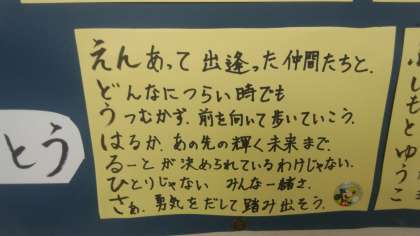 えんあって 出逢った仲間たちと、
どんなにつらい時でも
うつむかず、前を向いて歩いていこう。
はるか、あの先の輝く未来まで。
るーとが決められているわけじゃない。
ひとりじゃない みんな一緒さ。
さぁ、勇気をだして踏み出そう。
とう
ふじもと ゆうこ